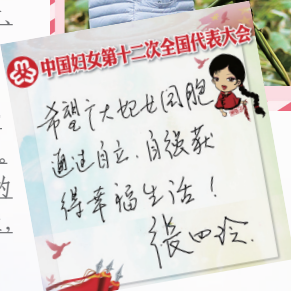 中国妇女第十二次全国代表大会
希望广大妇女同胞
通过自立、自强获
得幸福生活！
張四玲.
的